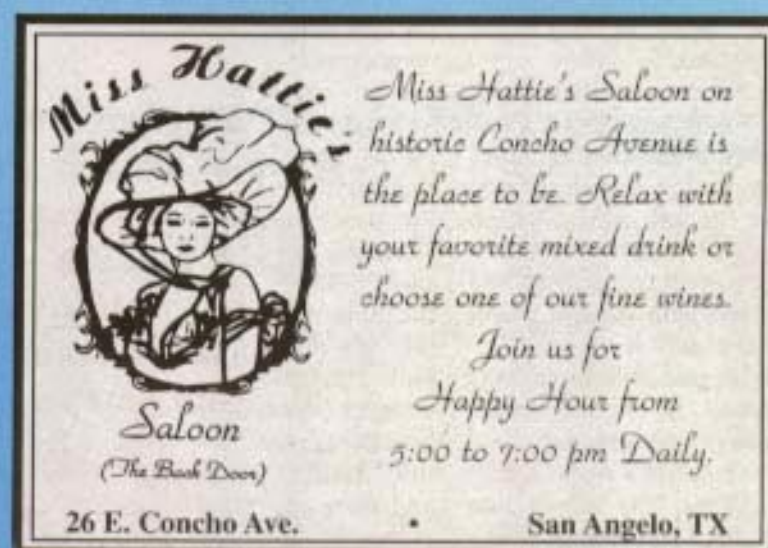 Miss Hattie's
Saloon
(The Back Door)
Miss Hattie's Saloon on
historic Concho Avenue is
the place to be. Relax with
your favorite mixed drink or
choose one of our fine wines.
Join us for
Happy Hour from
5:00 to 7:00 pm Daily.
26 E. Concho Ave. • San Angelo, TX